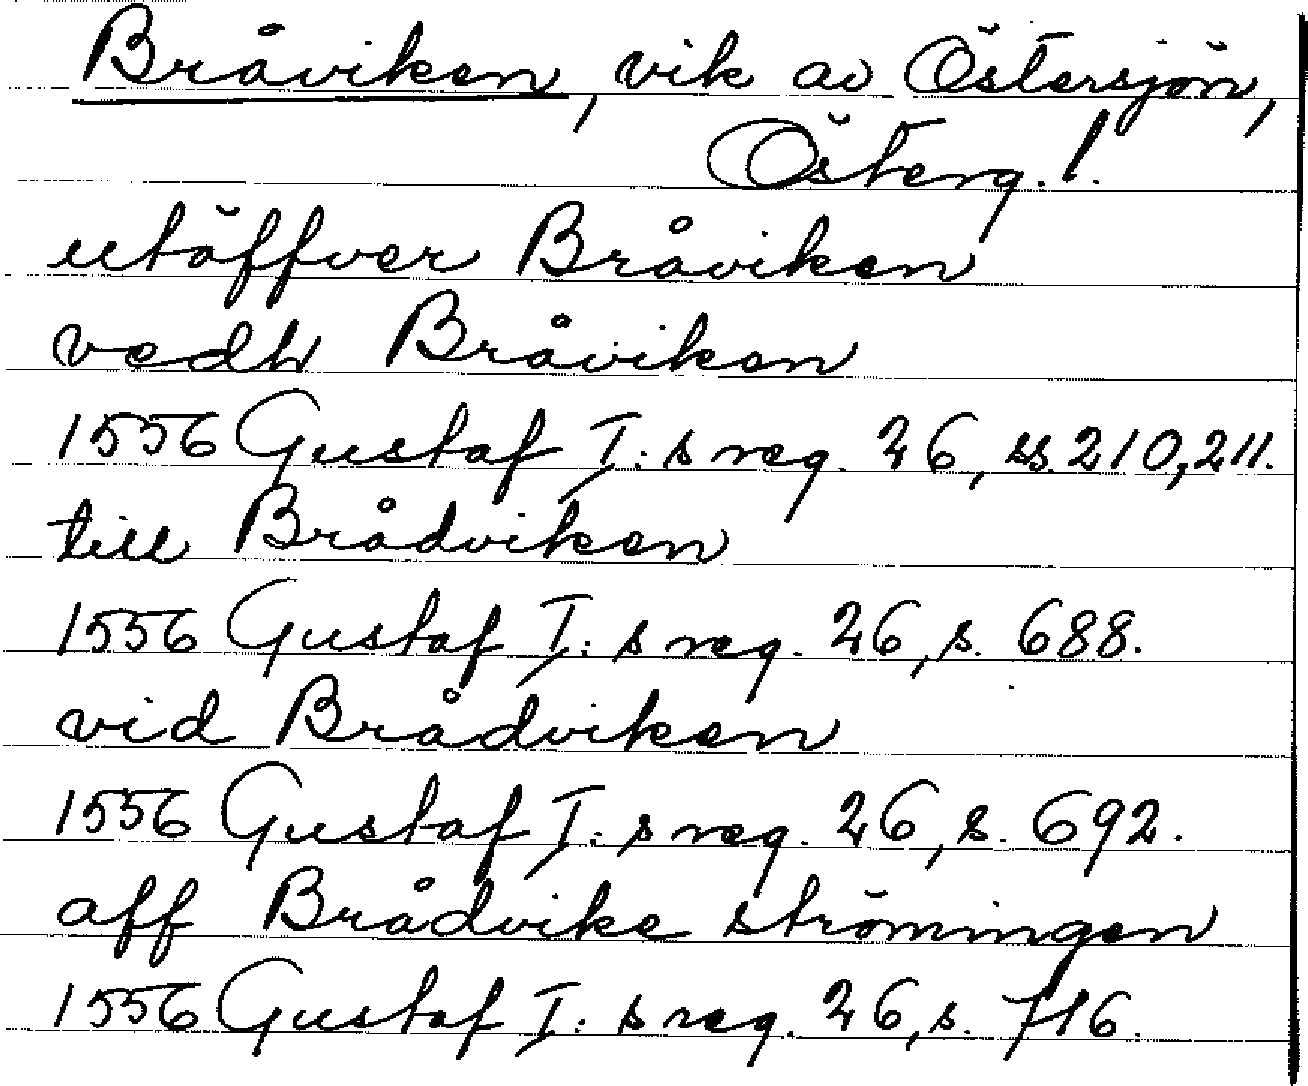 Bråviken, vik av Östersjön,
Österg. l.
utöffver Bråviken
vedh Bråviken
1556 Gustaf I:s reg. 26, ss. 210, 211.
till Brådviken
1556 Gustaf I:s reg. 26, s. 688.
vid Brådviken
1556 Gustaf I:s reg. 26, s. 692.
aff Brådvike strömingen
1556 Gustaf I:s reg. 26, s. 716.